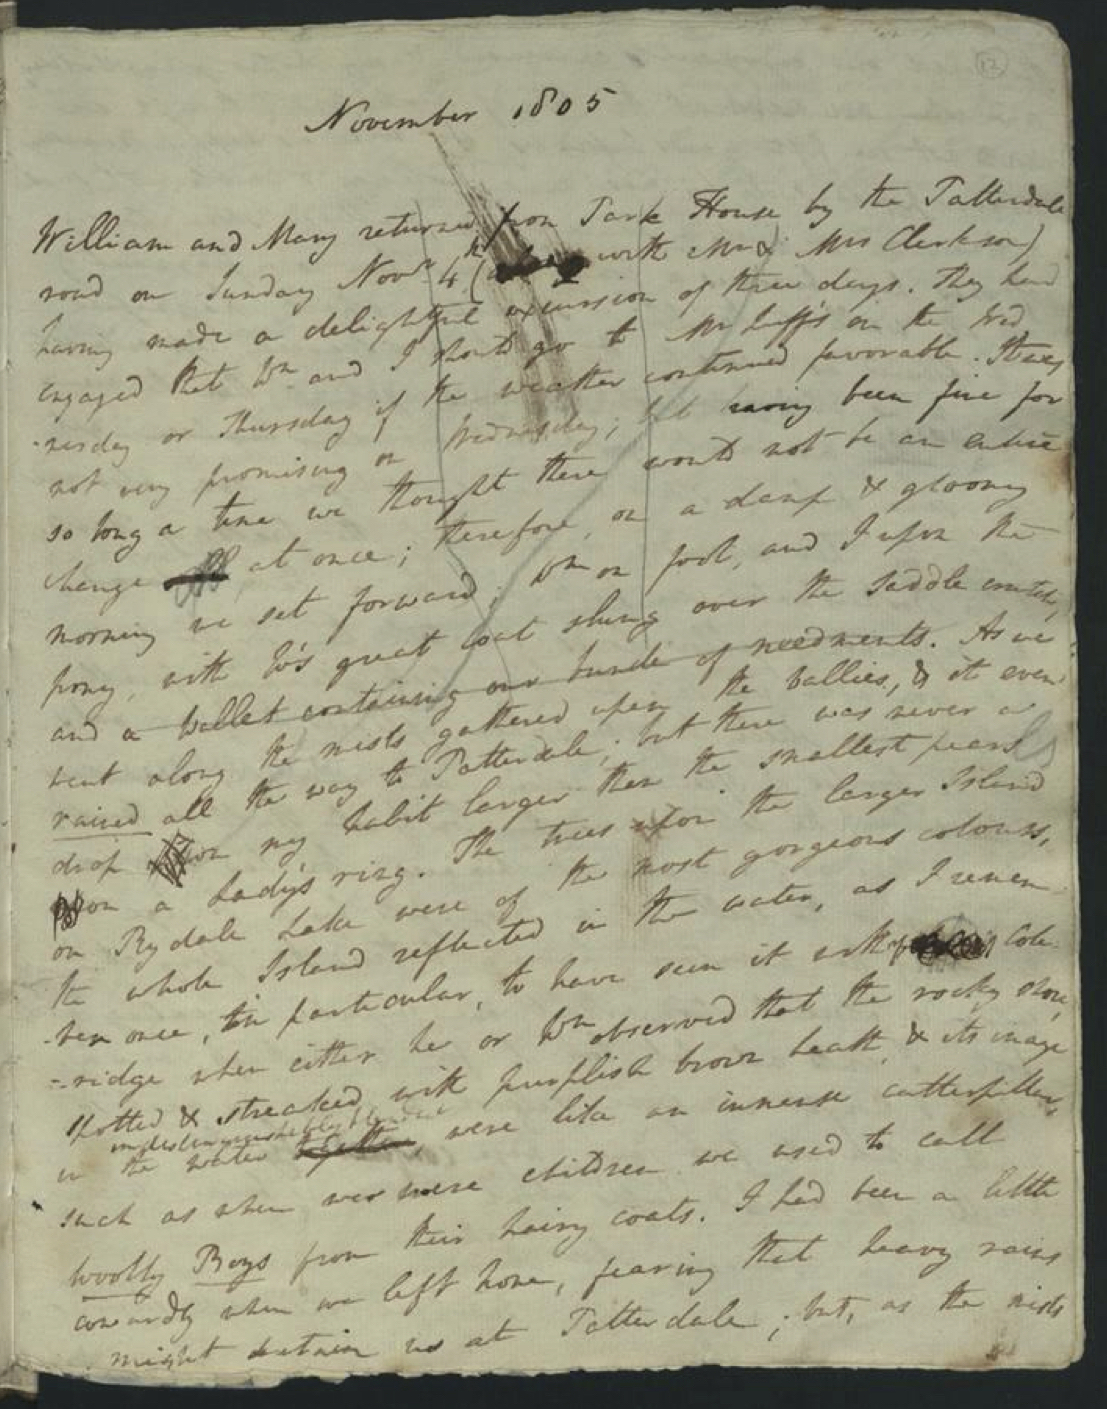 12
November 1805
William and Mary returned from Park House by the Patterdale
road on Sunday Novr 4th ( with Mr & Mrs Clarkson)
having made a delightful excursion of three days. They had
engaged that Wm and I should go to Mr Luff's on the Wed
-nesday or Thursday if the weather continued favorable. It was
not very promising on Wednesday; but having been fine for
so long a time we thought there would not be an entire
change at once; therefore, on a damp & gloomy
morning we set forward; Wm on foot, and I upon the
pony, with Wm's great coat slung over the saddle crutch,
and a wallet containing our bundle of needments. As we
went along the mists gathered upon the vallies, & it even
rained all the way to Patterdale; but there was never a
drop upon my habit larger than the smallest pearls
upon a Lady's ring. The trees upon the larger Island
on Rydale Lake were of the most gorgeous colours,
the whole Island reflected in the water, as I remem
-ber once, in particular, to have seen it with Cole-
-ridge when either he or Wm observed that the rocky shore,
spotted & streaked with purplish brown heath, & its image
indistinguishably blended
in the water together, were like an immense catterpillar,
such as when we were children we used to call
Woolly Boys from their hairy coats. I had been a little
cowardly when we left home, fearing that heavy rains
might detain us at Patterdale; but, as the mists